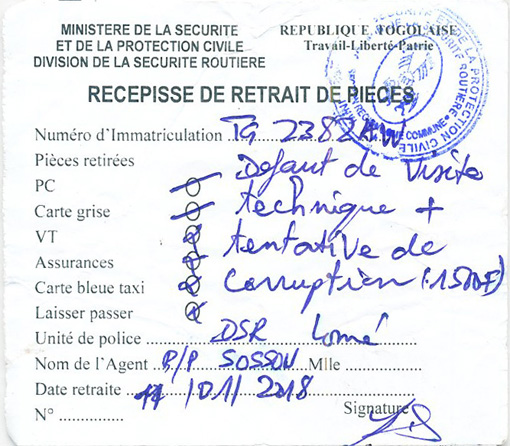 MINISTERE DE LA SECURITE
ET DE LA PROTECTION CIVILE
DIVISION DE LA SECURITE ROUTIERE
REPUBLIQUE TOGOLAISE
Travail-Liberté-Patrie
RECEPISSE DE RETRAIT DE PIECES
Numéro d'Immatriculation TG 2382AW
Pièces retirées Defaut de Visite
PC
Carte grise technique +
VT tentative de
Assurances
Carte bleue taxi corruption (1500F)
Laisser passer
Unité de police DSR Lomé
Nom de l'Agent P/P SOSSOU Mlle
Date retraite 11/01/2018
N° Signature